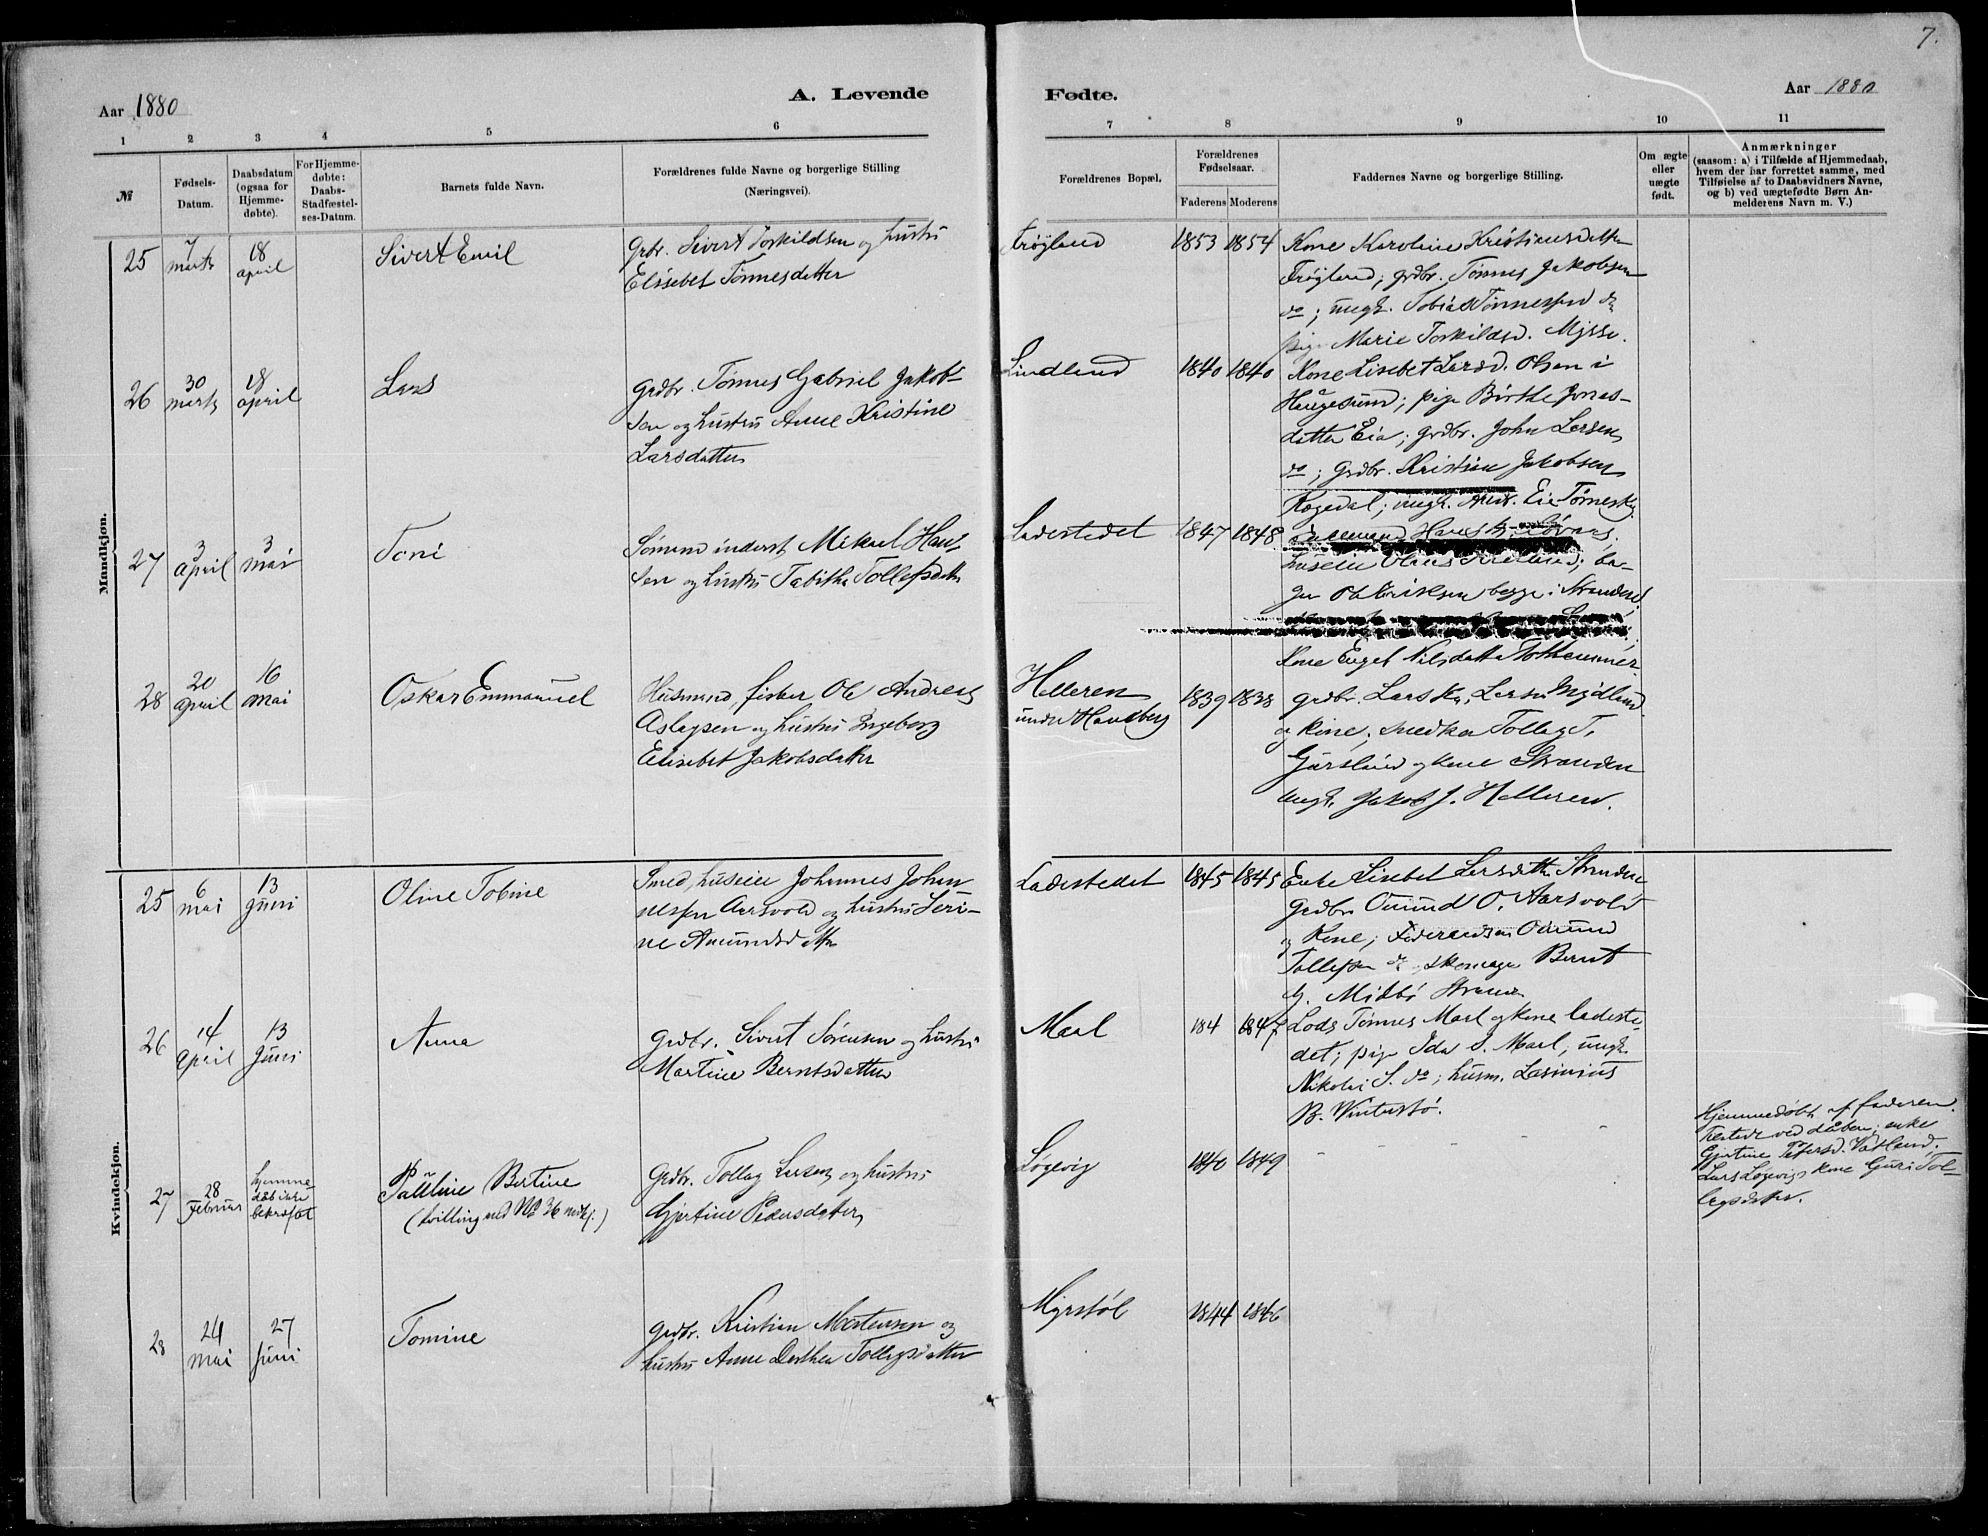 7.
Aar 1880
A. Levende
Fødte.
Aar 1880
1 2 3 4 5 6
7 8 9 10 11
№
Fødsels-
Datum.
Daabsdatum
(ogsaa for
Hjemme-
døbte).
For Hjemme-
døbte:
Daabs-
Stadfæstel-
ses-Datum.
Barnets fulde Navn.
Forældrenes fulde Navne og borgerlige Stilling
(Næringsvei).
Forældrenes Bopæl.
Forældrenes
Fødselsaar.
Faderens Moderens
Faddernes Navne og borgerlige Stilling.
Om ægte
eller
uægte
født.
Anmærkninger
(saasom: a) i Tilfælde af Hjemmedaab,
hvem der har forrettet samme, med
Tilføielse af to Daabsvidners Navne,
og b) ved uægtefødte Børn An-
melderens Navn m. V.)
Mandkjøn.
25
7
marts
18
april
Sivert Emil
Grbr. Sivert Torkildsen og hustru
Elisebet Tønnesdatter
Frøyland
1853 1854
Kone Karoline Kristiansdatter
Frøyland; grdbr. Tønnes Jakobsen
do; ungk. Tobias Tønnessen do
pige Marie Torkildsd. Mysse.
26
30
marts
18
april
Lars
Grdbr. Tønnes Gabriel Jakob-
sen og hustru Anne Kristine
Larsdatter
Lindland
1840 1840
Kone Lisebet Larsd. Olsen i
Haugesund; pige Birthe Jonas-
datter Eia; grdbr. John Larsen
do; grdbr. Kristian Jakobsen
Rægedal; ungk. Andr. Eie Tønnes
27
3
april
3
mai
Toni
Sømand inderst Mikael Han-
sen og hustru Tabitha Tollefsdatter
Ladestedet
1847 1848
ba-
ger Ol. Eriksen begge i Stranden
Kone Engel Nilsdatter
28
20
april
16
mai
Oskar Emmanuel
Husmand, fisker Ole Andreas
Aslagsen og hustru Ingeborg
Elisebet Jakobsdatter
Helleren
under Hausberg
1839 1838
grdbr. Lars Larsen Mydland
og kone; snedker Tollag T.
Gursland og kone Stranden
ungk. Jakob J. Helleren.
Kvindekjøn.
25
6
mai
13
juni
Oline Tobine
Smed, huseier Johannes Johan-
nessen Aarsvold og hustru Seri-
ne Amundsdatter
Ladestedet
1845 1845
Enke Lisebet Larsdatter Stranden
Grdbr. Omund O. Aarsvold
og kone; Omund
Tollefsen do; skomager Bernt
G. Midbø Stranden
26
14
april
13
juni
Anna
Grdbr. Sivert Sørensen og hustru
Martine Berntsdatter
Marl
184 1847
Lods Tønnes Marl og kone ladeste-
det; pige Ida S. Marl; ungk.
Nikolai S. do; husm. Lasinius
B. Vinterstø.
27
28
Februar
hjemme
dåb ikke
bekræftet
Pauline Bertine
(tvilling med No 36 mdkj.)
Grdbr. Tollag Larsen og hustru
Gjertine Pedersdatter
Løgevig
1840 1849
- - - - -
Hjemmedøbt af faderen.
Tilstede ved dåben: enke
Gjertine Petersd. Vatland;
Lars Løgevigs kone Guri Tol-
legsdatter.
28
24
mai
27
juni
Tomine
Grdbr. Kristian Mortensen og
hustru Anne Dorthea Tollagsdatter
Myrstøl
1844 1846